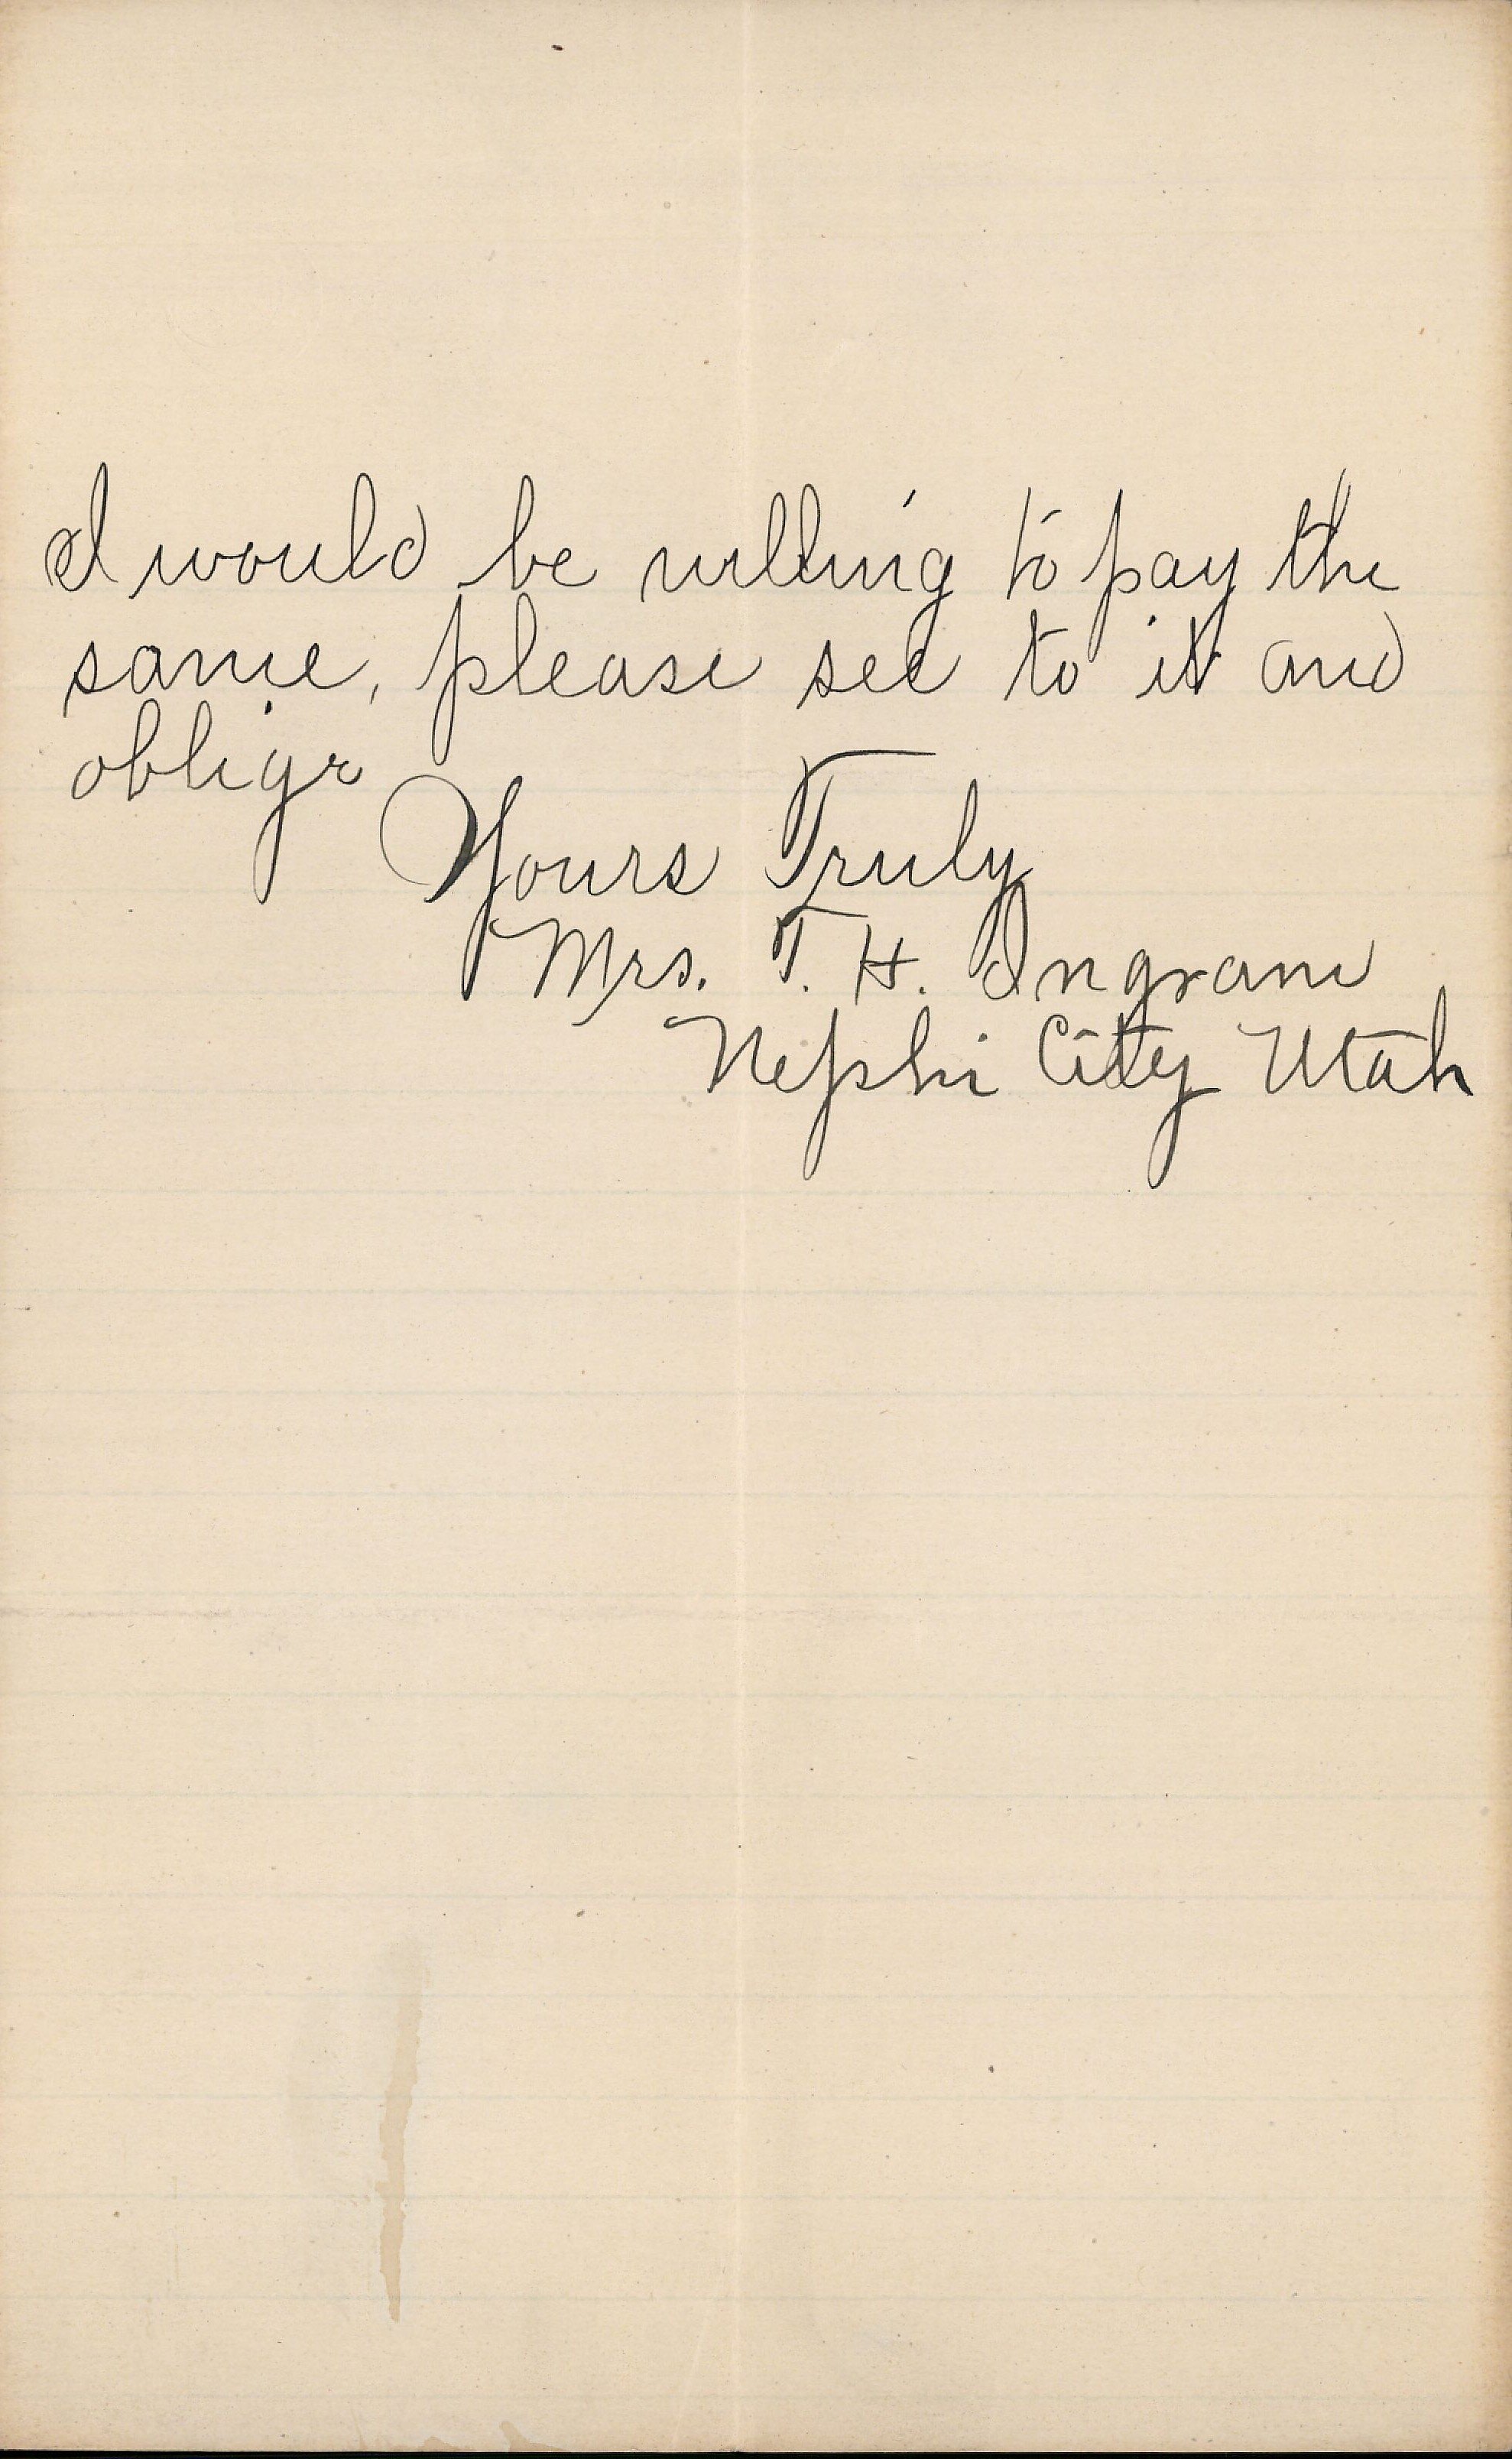 I would be willing to pay the
same, please see to it and
oblige
Yours Truly
Mrs. T. H. Ingram
Nephi City Utah